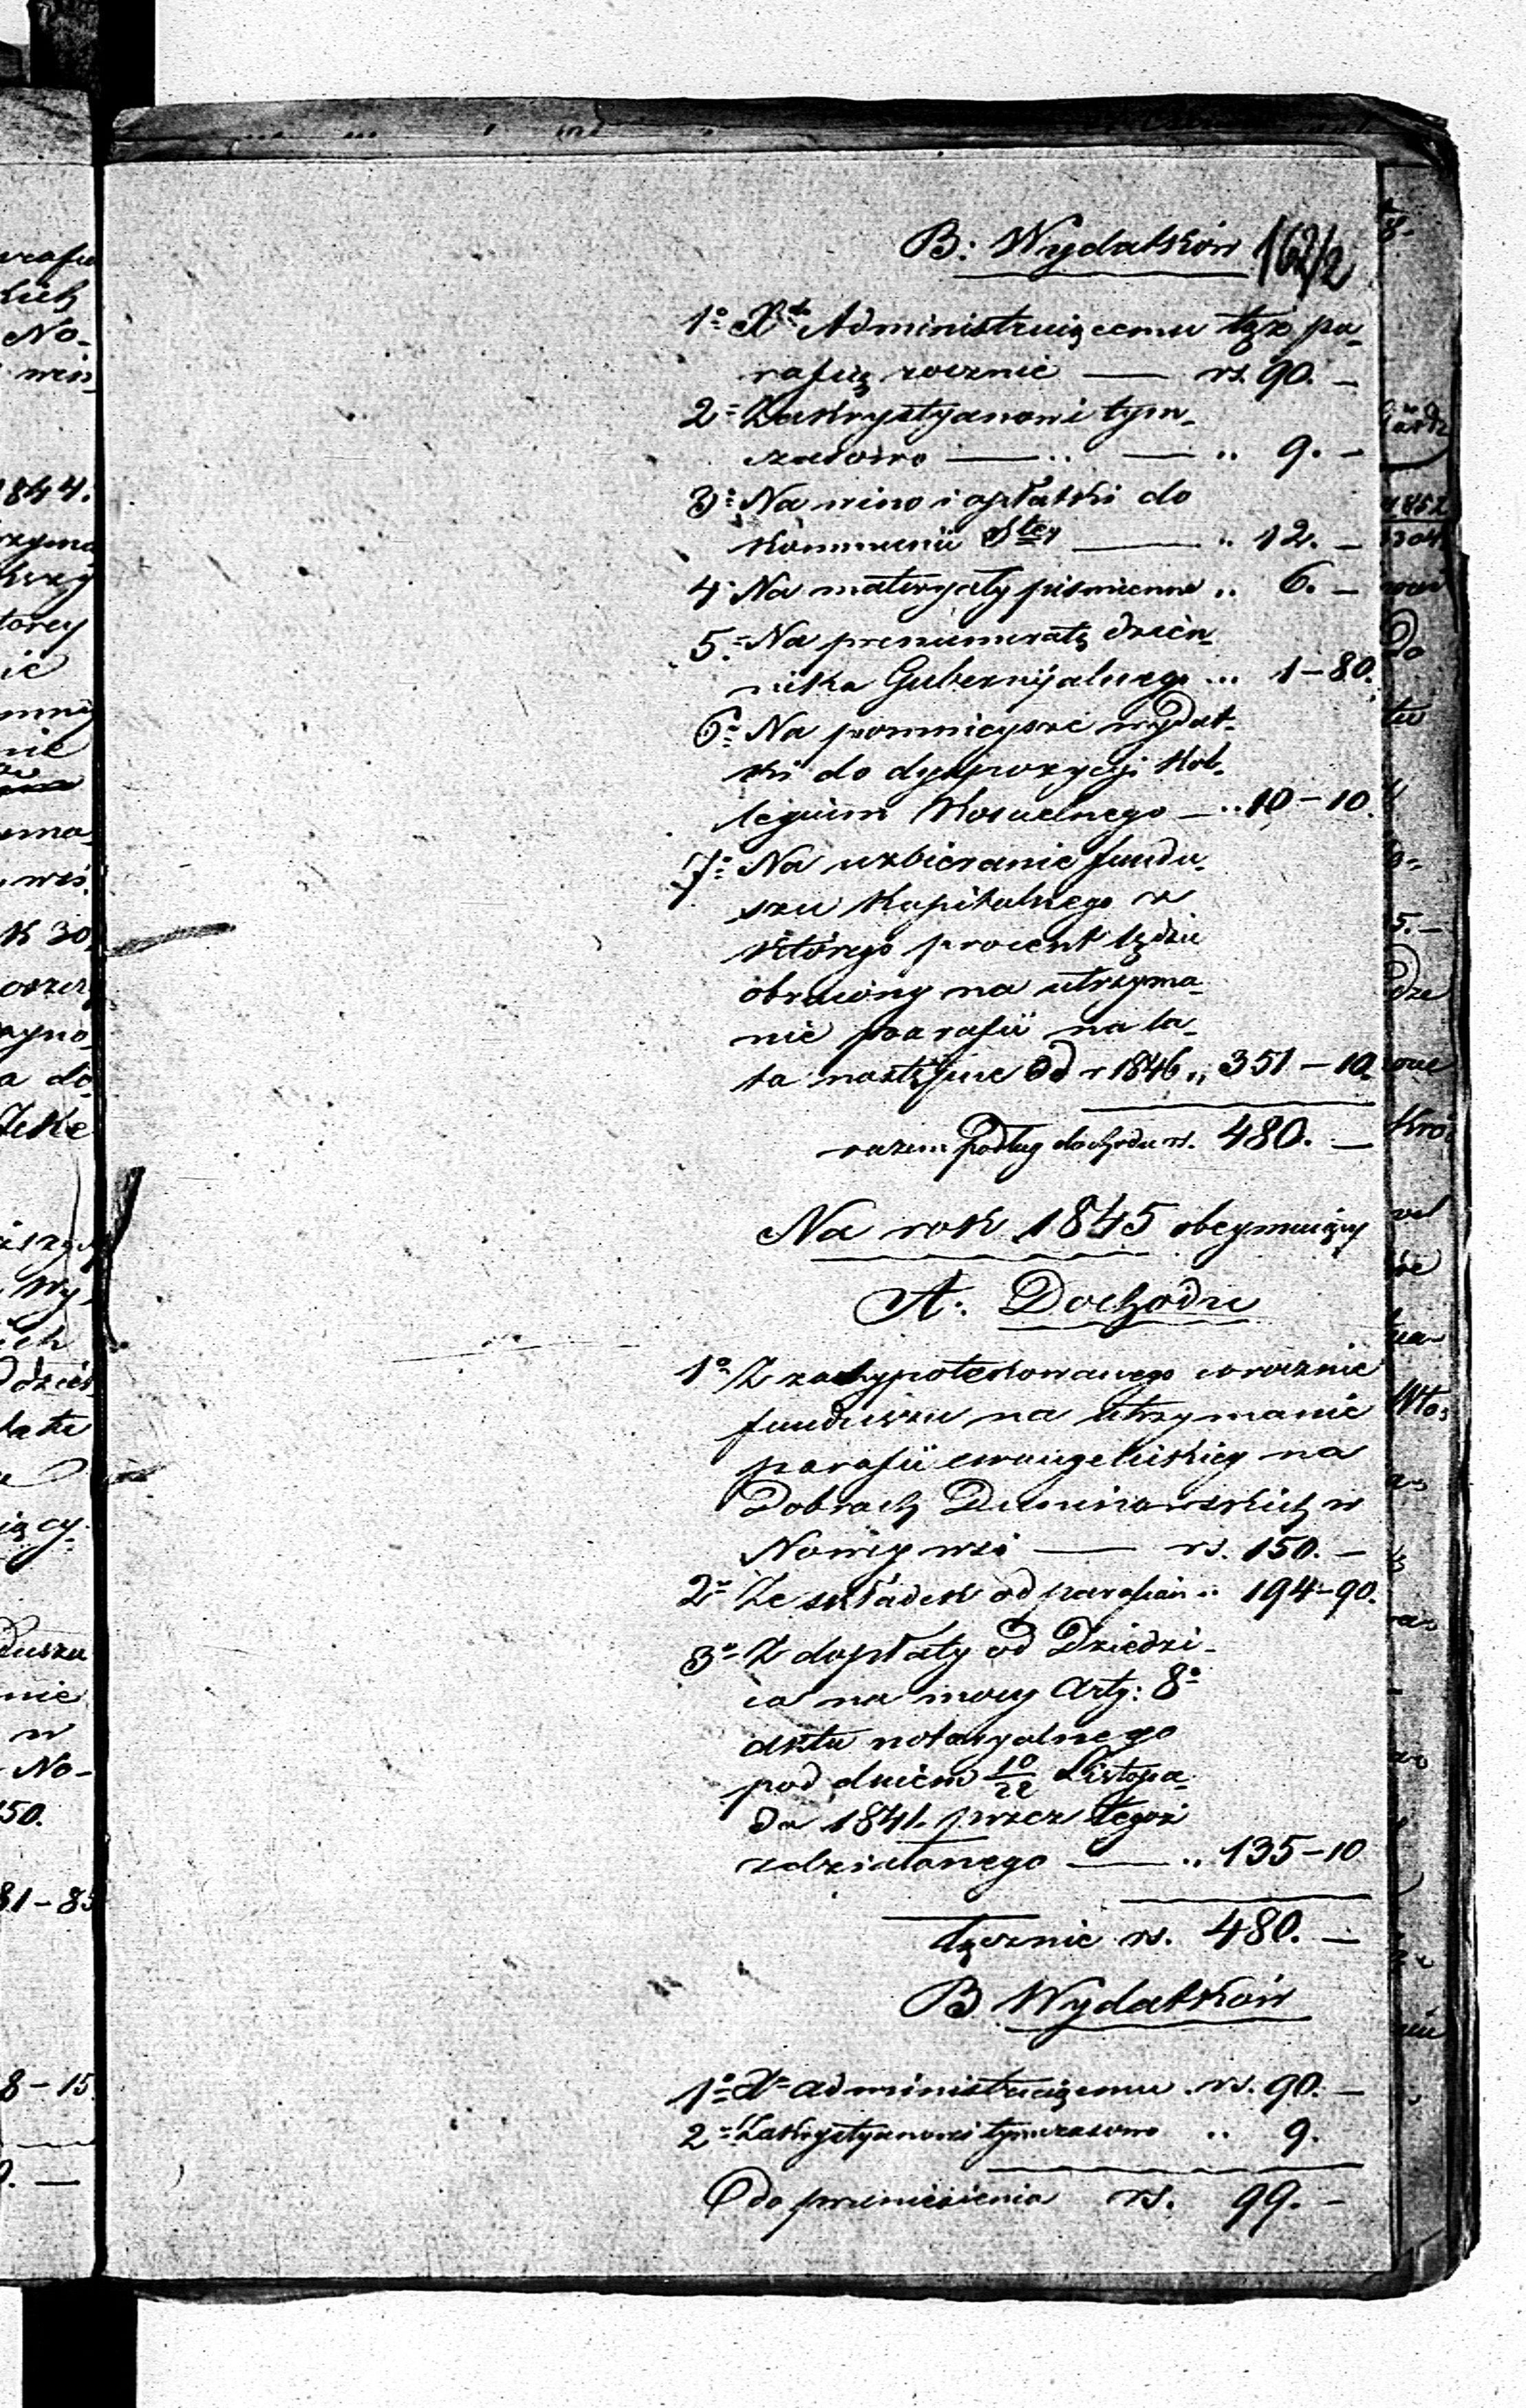 B: Wydatków 162/2
1º Xdu Administruiącemu tęż pa-
rafią rocznie — rs. 90. —
2= Zakrystyanowi tym-
czasowo — .. — .. 9. —
3º Na wino i opłatki do
kommunii Stey — .. 12. —
4. Na materyały piśmienne .. 6. —
5.= Na prenumeratę dzien-
nika Gubernijalnego ... 1 - 80.
6º Na pomnieysze wydat-
ki do dyspozycyi Kol-
legium Koscielnego — .. 10 - 10.
7º Na uzbieranie fundu-
szu Kapitalnego z
którego procent będzie
obrócony na utrzyma-
nie parafii na la-
ta następne od r 1846 „ 351 - 10.
razem podług dochodu rs. 480. —
Na rok 1845 obeymuiący
A: Dochodu
1º Z zahypotekowanego corocznie
funduszu na utrzymanie
parafii ewangelickiey na
Dobrach w
Nowiy wsi — rs. 150. —
2= Ze składek od parafian .. 194 - 90.
3º Z dopłaty od Dziedzi-
ca na mocy Arty: 8º
aktu notaryalnego
pod dniem 10/22 Listopa-
da 1841. przez tegoż
zdziałanego — .. 135 - 10
łącznie rs. 480. —
B Wydatków
1º X= administruiącemu . rs. 90. —
2= Zakrystyanowi tymczasowo .. 9.
do przeniesienia rs. 99. —